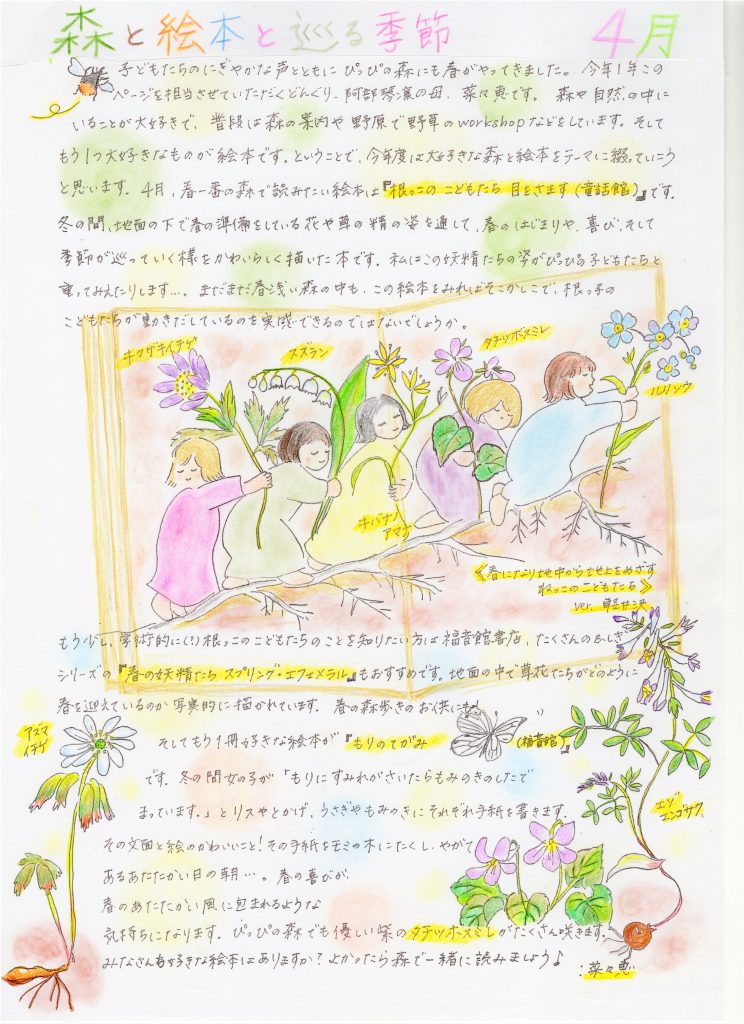 森と絵本と巡る季節 4月
子どもたちのにぎやかな声とともに ぴっぴの森にも春がやってきました。今年1年この
ページを担当させていただくどんぐり、阿部 の母、菜々恵です。森や自然の中に
いることが大好きで、普段は森の案内や野原で野草のworkshopなどをしています。そして
もう1つ大好きなものが絵本です。ということで、今年度は大好きな森と絵本をテーマに綴っていこう
と思います。4月、春一番の森で読みたい絵本は『根っこのこどもたち 目をさます(童話館)』です。
冬の間、地面の下で春の準備をしている花や草の精の姿を通して、春のはじまりや、喜び、そして
季節が巡っていく様をかわいらしく描いた本です。私はこの妖精たちの姿がぴっぴの子どもたちと
重ってみえたりします…。まだまだ春浅い森の中も、この絵本をみればそこかしこで、根っ子の
こどもたちが動きだしているのを実感できるのではないでしょうか。
キクザキイチゲ
スズラン
タチツボスミレ
ルリソウ
キバナノ
アマナ
《春になり地中から地上をめざす
ねっこのこどもたち》
ver. 軽井沢
もう少し、学術的に(?)根っこのこどもたちのことを知りたい方は福音館書店、たくさんのふしぎ
シリーズの『春の妖精たち スプリング・エフェメラル』もおすすめです。地面の中で草花たちがどのように
春を迎えているのか写実的に描かれています。春の森歩きのお供にも♪
アズマ
イチゲ
そしてもう1冊好きな絵本が『もりのてがみ (福音館)』
です。冬の間女の子が「もりにすみれがさいたらもみのきのしたで
まっています。」とリスやとかげ、うさぎやもみのきにそれぞれ手紙を書きます。
エゾ
エンゴサク
その文面と絵のかわいいこと!その手紙をモミの木にたくし、やがて
あるあたたかい日の朝…。春の喜びが、
春のあたたかい風に包まれるような
気持ちになります。ぴっぴの森でも優しい紫のタチツボスミレがたくさん咲きます。
みなさんも好きな絵本はありますか?よかったら森で一緒に読みましょう♪
:菜々恵